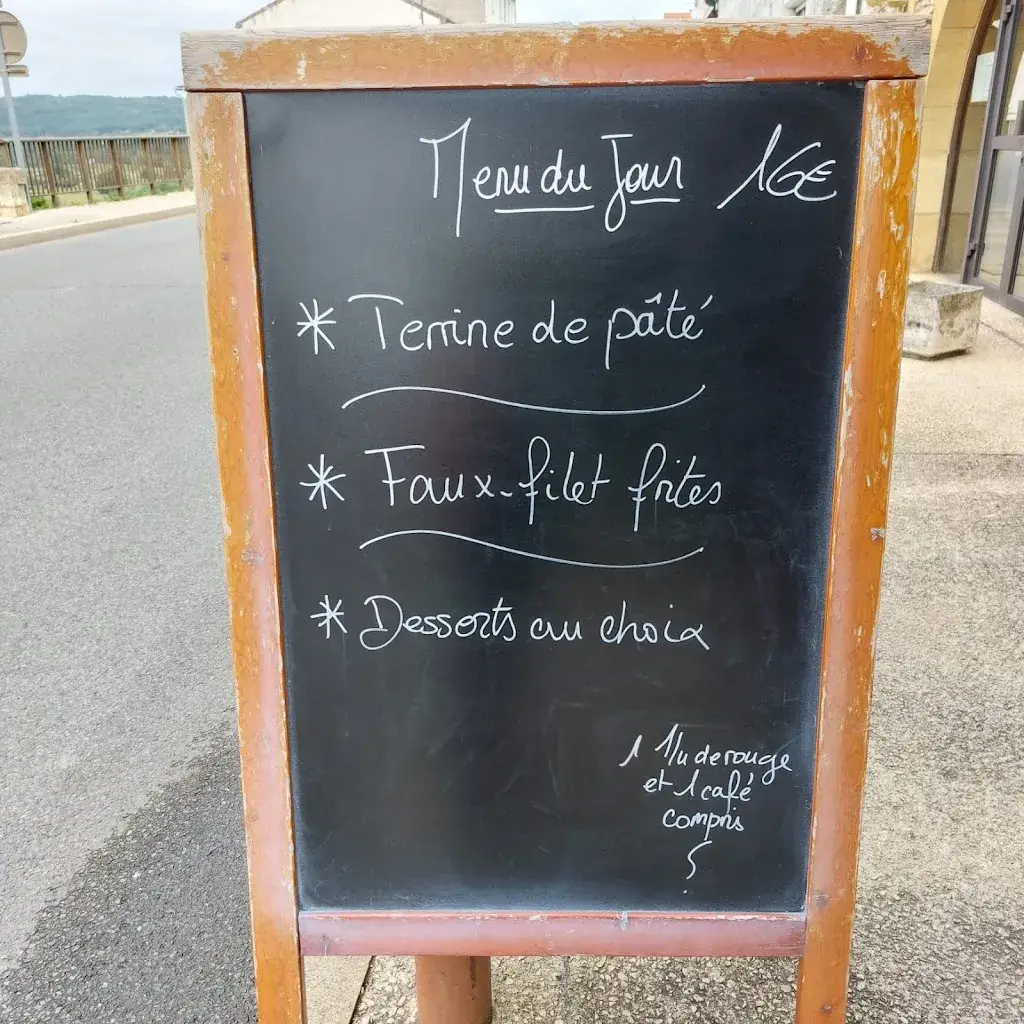 Menu du Jour 16€
* Terrine de pâté
* Faux-filet frites
* Desserts au choix
1 1/4 de rouge
et 1 café
compris